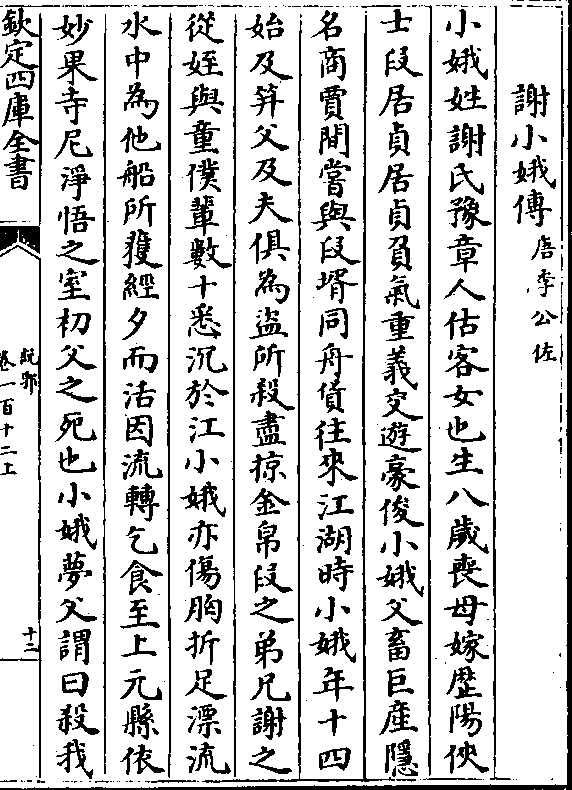 謝小娥傳 唐李公佐
小娥姓謝氏豫章人估客女也生八歲喪母嫁歷陽俠
士段居貞居貞負氣重義交遊豪俊小娥父畜巨產隱
名商賈間嘗與段壻同舟貨往來江湖時小娥年十四
始及笄父及夫俱為盜所殺盡掠金帛段之弟兄謝之
從姪與童僕輩數十悉沉於江小娥亦傷胸折足漂流
水中為他船所獲經夕而活因流轉乞食至上元縣依
妙果寺尼淨悟之室初父之死也小娥夢父謂曰殺我
欽定四庫全書
說郛
卷一百十二上
十三